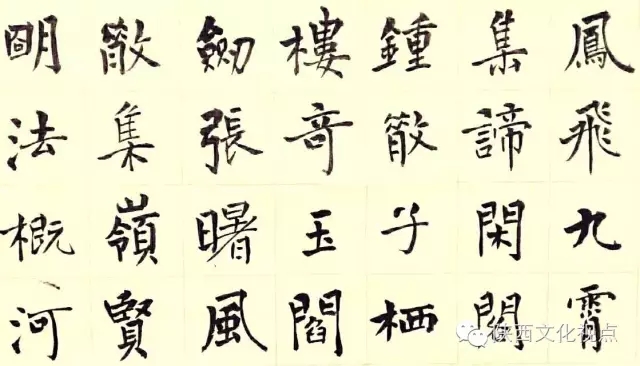 鳳飛九霄
集諦閑閣
鍾散子栖
樓竒玉閻
劒張曙風
散集嶺賢
明法概河
陕西文化视点